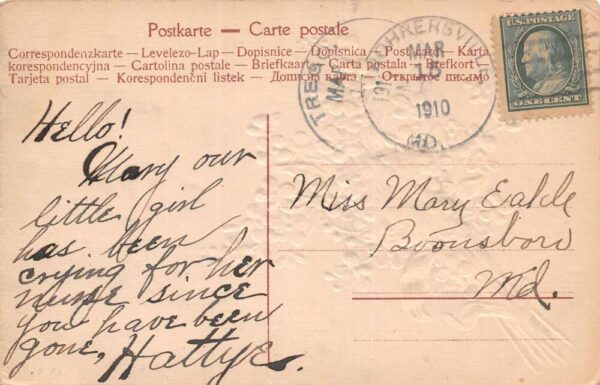 Postkarte — Carte postale
Correspondenzkarte — Levelezo-Lap — Dopisnice — Dopisnica — Post karta — Karta
korespondencyjna — Cartolina postale — Briefkaarte — Carta postala — Brefkort —
Tarjeta postal — Korespondenční listek — Дописна карта — Открытое письмо
MAR
1910
MD.
U.S. POSTAGE
ONE CENT
Hello!
Mary our
little girl
has been
crying for her
nurse since
you have been
gone, Hattye.
Miss Mary Eakle
Boonsboro
Md.